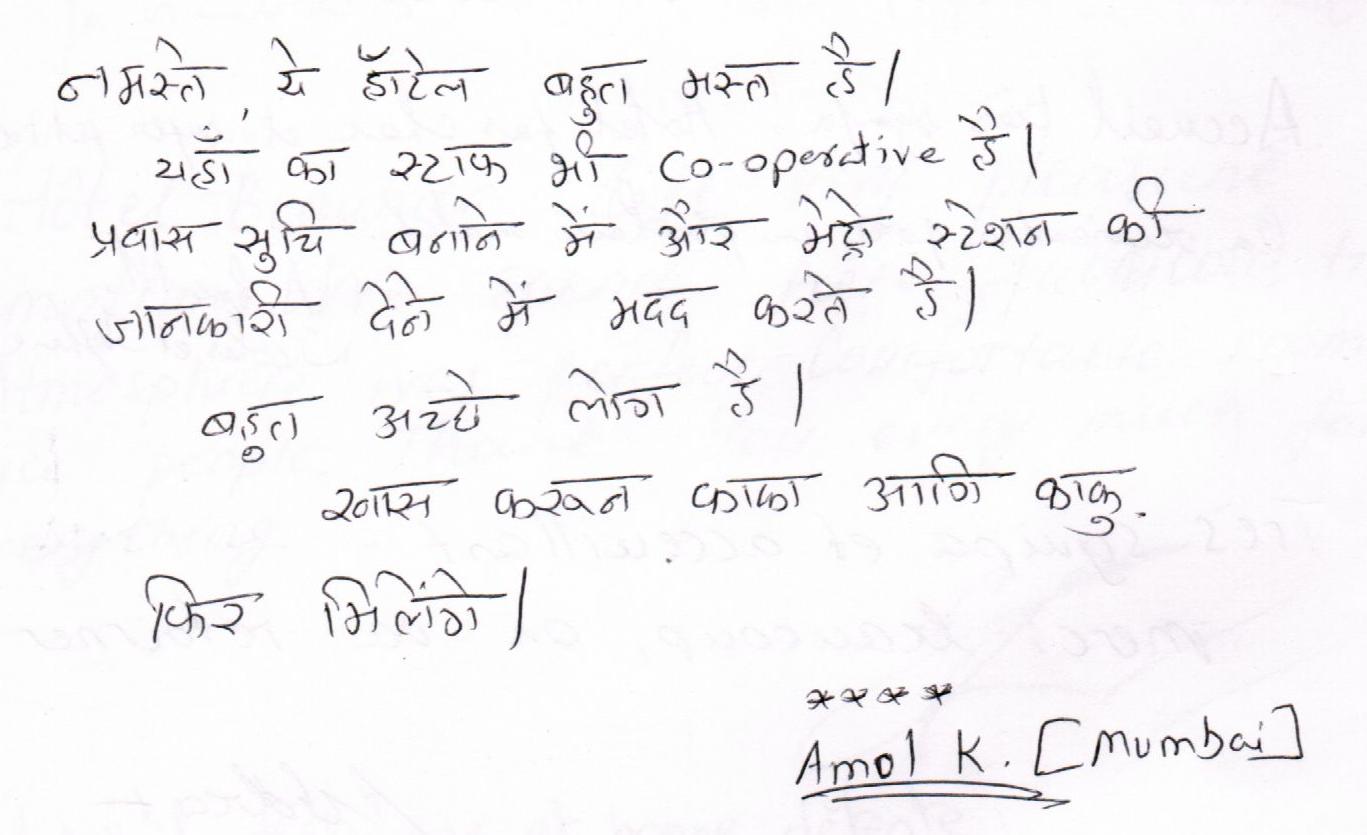 नमस्ते, ये हॉटेल बहुत मस्त है।
यहाँ का स्टाफ भी co-operative है।
प्रवास सुचि बनाने में और मेट्रो स्टेशन की
जानकारी देने में मदद करते है।
बहुत अच्छे लोग है।
खास करून काका आणि काकु.
फिर मिलेंगे।
****
Amol K. [Mumbai]